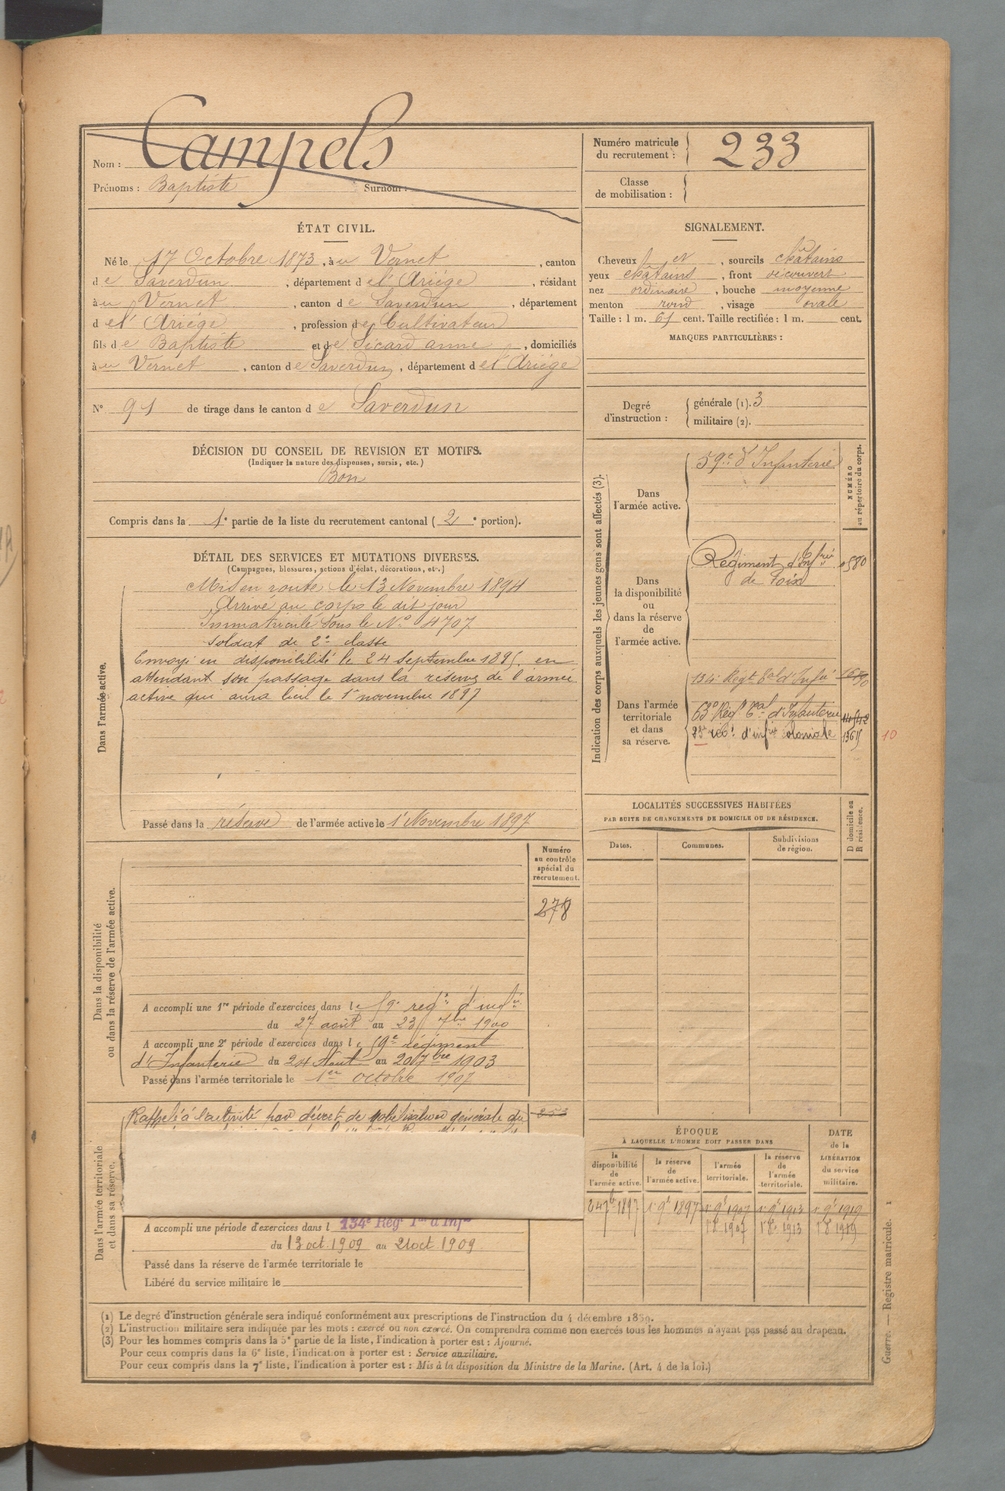 Nom : Campels
Prénoms : Baptiste Surnom :
Numéro matricule du recrutement : 233
Classe de mobilisation :
ÉTAT CIVIL.
Né le 17 Octobre 1873, à u Vernet, canton
d e Saverdun, département d e l'Ariège, résidant
à u Vernet, canton d e Saverdun, département
d e l'Ariège, profession d e Cultivateur
fils d e Baptiste et d e Sicard anne, domiciliés
à u Vernet, canton d e Saverdun, département d e l'Ariège
N° 91 de tirage dans le canton d e Saverdun
SIGNALEMENT.
Cheveux et, sourcils châtains
yeux châtains, front découvert
nez ordinaire, bouche moyenne
menton rond, visage ovale
Taille : 1 m. 61 cent. Taille rectifiée : 1 m. cent.
MARQUES PARTICULIÈRES :
Degré d'instruction : générale (1). 3
militaire (2).
DÉCISION DU CONSEIL DE REVISION ET MOTIFS.
(Indiquer la nature des dispenses, sursis, etc.)
Bon
Compris dans la 1e partie de la liste du recrutement cantonal (2e portion).
DÉTAIL DES SERVICES ET MUTATIONS DIVERSES.
(Campagnes, blessures, actions d'éclat, décorations, etc.)
Dans l'armée active.
Mis en route le 13 Novembre 1894
Arrivé au corps le dit jour
Immatriculé sous le N° 4707
Soldat de 2e classe
Envoyé en disponibilité le 24 Septembre 1895, en
attendant son passage dans la réserve de l'armée
active qui aura lieu le 1er novembre 1897
Passé dans la réserve de l'armée active le 1er Novembre 1897
Indication des corps auxquels les jeunes gens sont affectés (3).
NUMÉRO au répertoire du corps.
Dans l'armée active.
59e d'Infanterie
Dans la disponibilité ou dans la réserve de l'armée active.
Régiment d'Infrie 580
de Foix
Dans l'armée territoriale et dans sa réserve.
134e Regt tal d'Infie
63e Regt tal d'Infanterie
régt d'infie coloniale
10
LOCALITÉS SUCCESSIVES HABITÉES
PAR SUITE DE CHANGEMENTS DE DOMICILE OU DE RÉSIDENCE.
Dates. Communes. Subdivisions de région. D domicile ou R résidence.
Dans la disponibilité ou dans la réserve de l'armée active.
Numéro au contrôle spécial du recrutement.
278
A accompli une 1re période d'exercices dans l e 59e regt d'infie
du 27 août au 23 7bre 1900
A accompli une 2e période d'exercices dans l e 59e régiment
d'Infanterie du 24 Août au 20 7bre 1903
Passé dans l'armée territoriale le 1er octobre 1907
Dans l'armée territoriale et dans sa réserve.
Rappelé à l'activité par décret de mobilisation générale du
A accompli une période d'exercices dans l 134e Régt Tal d'Infie
du 13 oct 1909 au 21 oct 1909
Passé dans la réserve de l'armée territoriale le
Libéré du service militaire le
ÉPOQUE
À LAQUELLE L'HOMME DOIT PASSER DANS
la disponibilité de l'armée active.
la réserve de l'armée active.
l'armée territoriale.
la réserve de l'armée territoriale.
DATE de la LIBÉRATION du service militaire.
24 7b 1897 1er 9b 1897 1er 9b 1907 1er 9b 1913 1er 9b 1919
1er 8 1907 1er 8 1913 1er 8 1919
(1) Le degré d'instruction générale sera indiqué conformément aux prescriptions de l'instruction du 4 décembre 1889.
(2) L'instruction militaire sera indiquée par les mots : exercé ou non exercé. On comprendra comme non exercés tous les hommes n'ayant pas passé au drapeau.
(3) Pour les hommes compris dans la 5e partie de la liste, l'indication à porter est : Ajourné.
Pour ceux compris dans la 6e liste, l'indication à porter est : Service auxiliaire.
Pour ceux compris dans la 7e liste, l'indication à porter est : Mis à la disposition du Ministre de la Marine. (Art. 4 de la loi.)
Guerre. — Registre matricule. 1